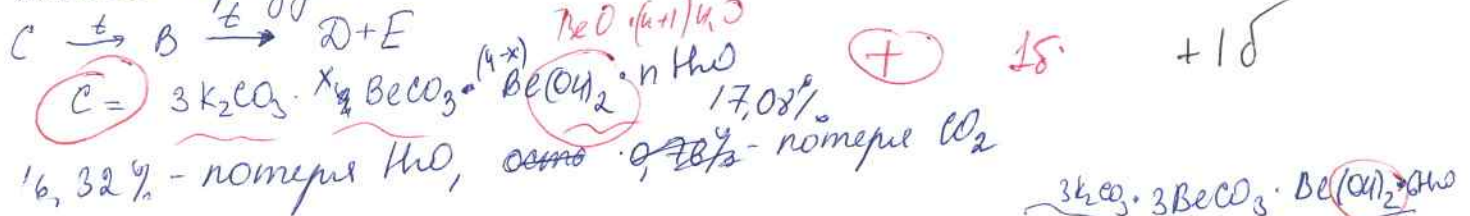 BeO·(n+1)H₂O
C →(t) B →(t) D+E + 1б. +1б
C = 3K₂CO₃· x BeCO₃·(4-x) Be(OH)₂·nH₂O
17,08%
16,32% - потеря H₂O, - потеря CO₂
3K₂CO₃·3BeCO₃·Be(OH)₂·6H₂O